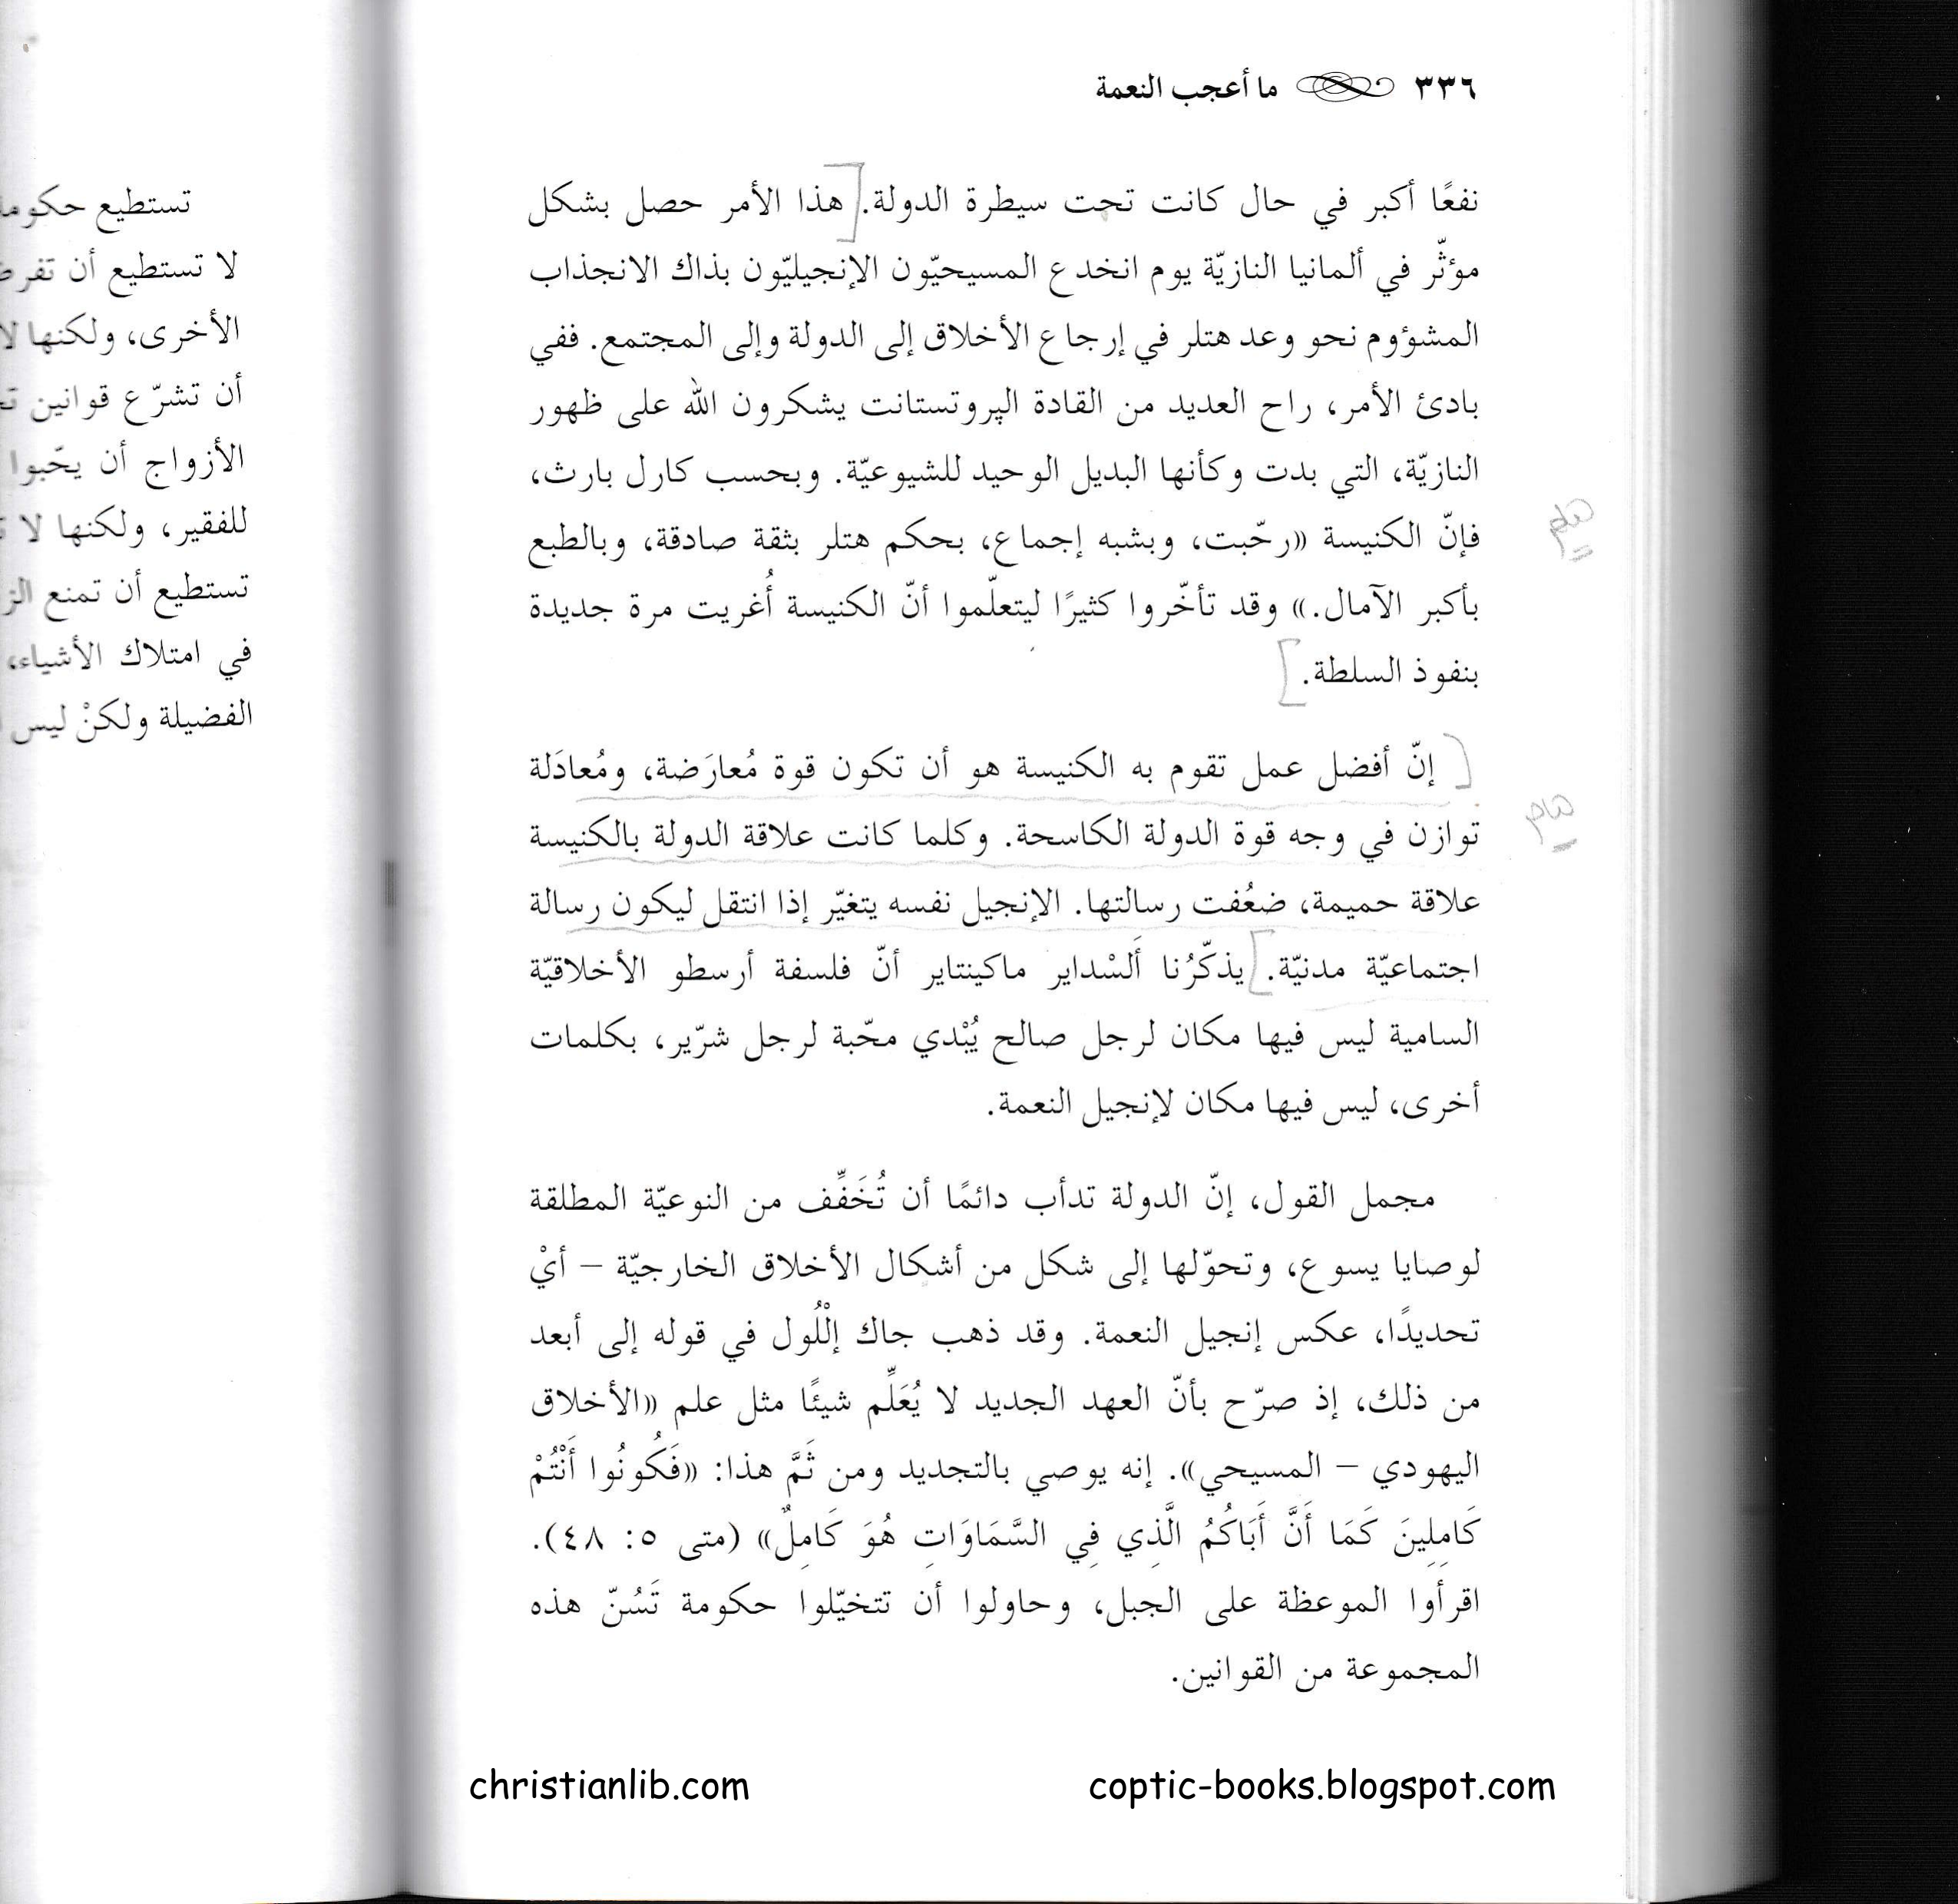 ٣٣٦ ما أعجب النعمة
نفعًا أكبر في حال كانت تحت سيطرة الدولة. [هذا الأمر حصل بشكل
مؤثّر في ألمانيا النازيّة يوم انخدع المسيحيّون الإنجيليّون بذاك الانجذاب
المشؤوم نحو وعد هتلر في إرجاع الأخلاق إلى الدولة وإلى المجتمع. ففي
بادئ الأمر، راح العديد من القادة الپروتستانت يشكرون الله على ظهور
النازيّة، التي بدت وكأنها البديل الوحيد للشيوعيّة. وبحسب كارل بارث،
فإنّ الكنيسة «رحّبت، وبشبه إجماع، بحكم هتلر بثقة صادقة، وبالطبع
هام
بأكبر الآمال.» وقد تأخّروا كثيرًا ليتعلّموا أنّ الكنيسة أُغريت مرة جديدة
بنفوذ السلطة.]
[إنّ أفضل عمل تقوم به الكنيسة هو أن تكون قوة مُعارَضة، ومُعادَلة
هام
توازن في وجه قوة الدولة الكاسحة. وكلما كانت علاقة الدولة بالكنيسة
علاقة حميمة، ضعُفت رسالتها. الإنجيل نفسه يتغيّر إذا انتقل ليكون رسالة
اجتماعيّة مدنيّة.] يذكّرُنا أَلسْداير ماكينتاير أنّ فلسفة أرسطو الأخلاقيّة
السامية ليس فيها مكان لرجل صالح يُبْدي محّبة لرجل شرّير، بكلمات
أخرى، ليس فيها مكان لإنجيل النعمة.
مجمل القول، إنّ الدولة تدأب دائمًا أن تُخَفِّف من النوعيّة المطلقة
لوصايا يسوع، وتحوّلها إلى شكل من أشكال الأخلاق الخارجيّة – أيْ
تحديدًا، عكس إنجيل النعمة. وقد ذهب جاك إلْلُول في قوله إلى أبعد
من ذلك، إذ صرّح بأنّ العهد الجديد لا يُعَلِّم شيئًا مثل علم «الأخلاق
اليهودي – المسيحي». إنه يوصي بالتجديد ومن ثَمَّ هذا: «فَكُونُوا أَنْتُمْ
كَامِلِينَ كَمَا أَنَّ أَبَاكُمُ الَّذِي فِي السَّمَاوَاتِ هُوَ كَامِلٌ» (متى ٥: ٤٨).
اقرأوا الموعظة على الجبل، وحاولوا أن تتخيّلوا حكومة تَسُنّ هذه
المجموعة من القوانين.
تستطيع
لا تستطيع أن
الأخرى، ولكنها لا
أن تشرّع قوانين
الأزواج أن يحّبوا
للفقير، ولكنها لا
تستطيع أن تمنع
في امتلاك الأشياء،
الفضيلة ولكنْ ليس
christianlib.com coptic-books.blogspot.com